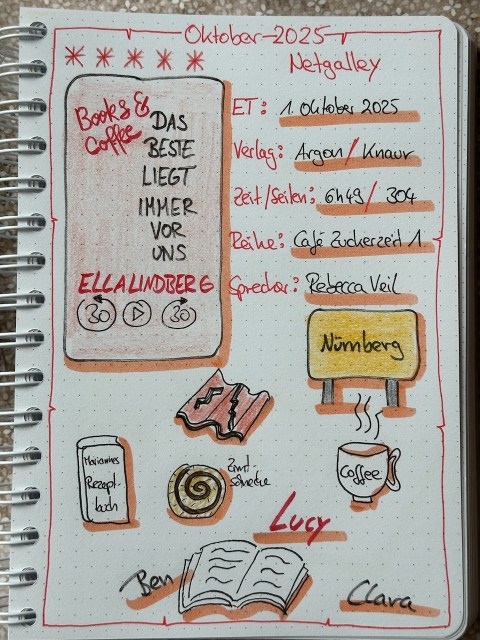 Oktober 2025
Netgalley
Books &
Coffee
DAS
BESTE
LIEGT
IMMER
VOR
UNS
ELLA LINDBERG
30 30
ET: 1. Oktober 2025
Verlag: Argon / Knaur
Zeit/Seiten: 6h49 / 304
Reihe: Café Zuckerzeit 1
Sprecher: Rebecca Veil
Nürnberg
Mariannes
Rezept-
buch
Zimt-
schnecke
Coffee
Lucy
Ben
Clara